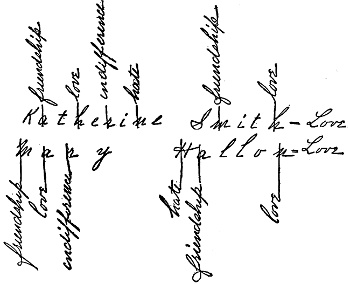 friendship love indifference hate friendship love
Katherine Smith - Love
Mary Hallon = Love
friendship love indifference hate friendship love